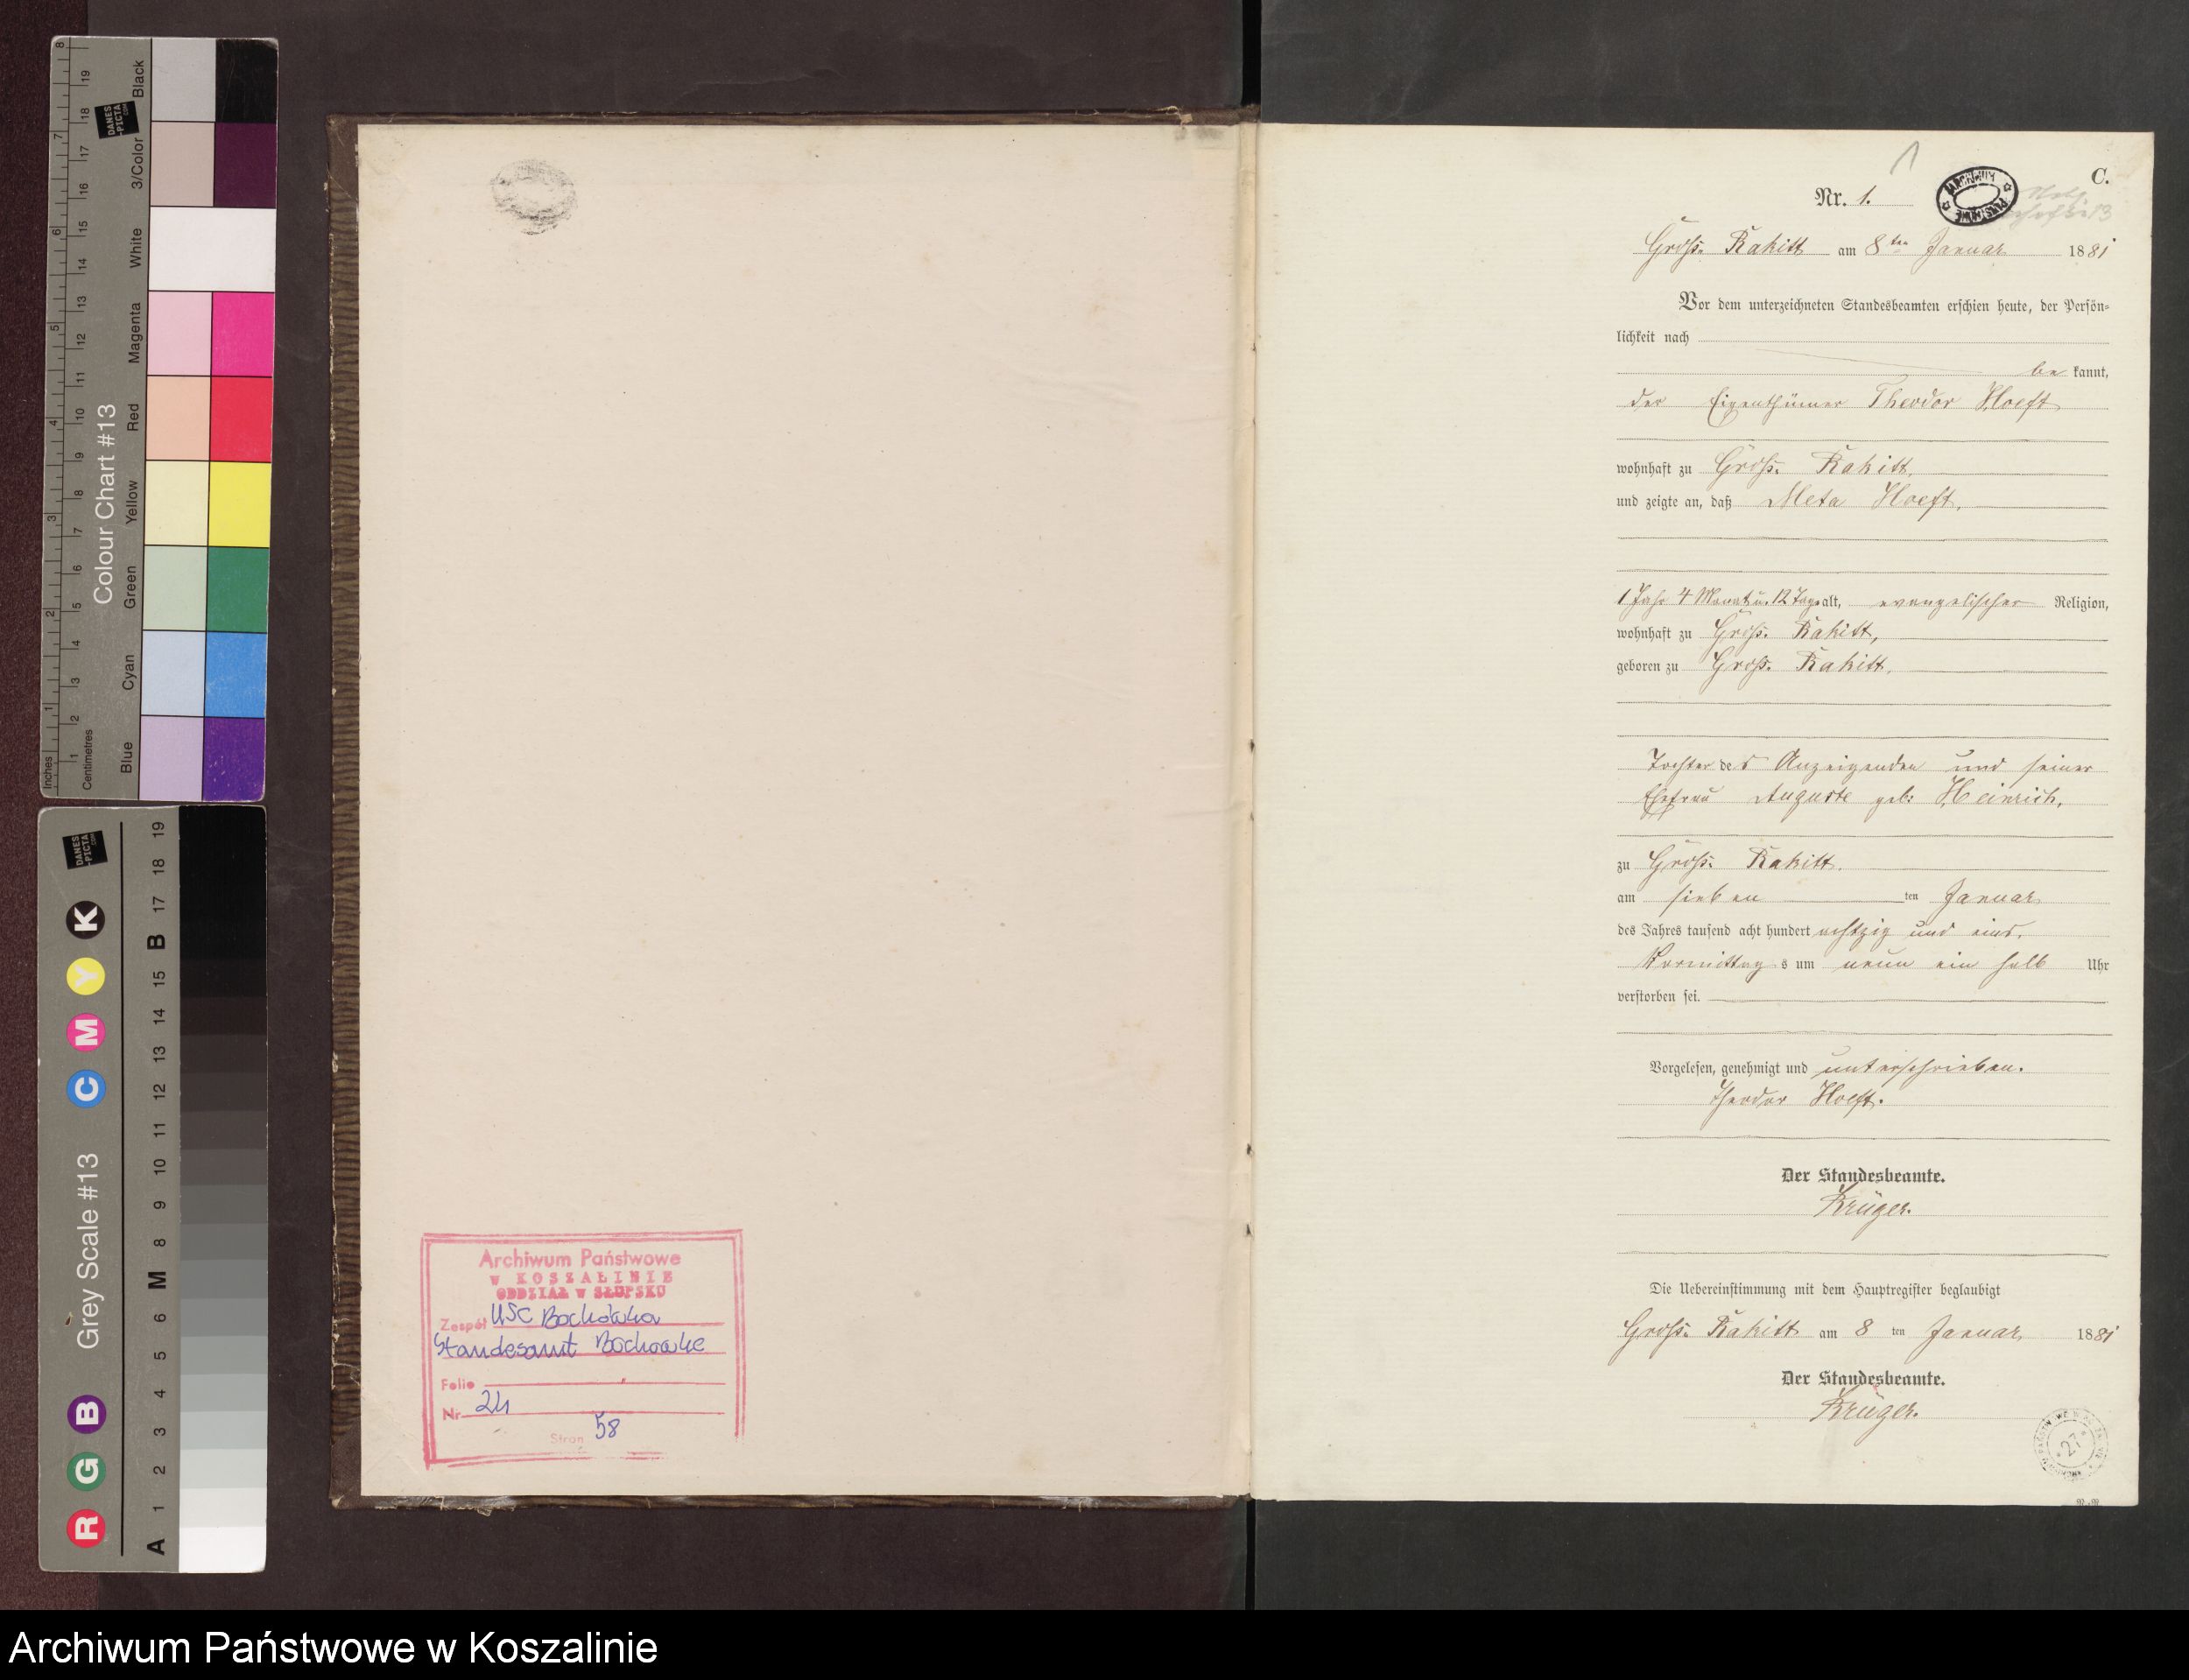 Archiwum Państwowe
w KOSZALINIE
ODDZIAŁ w SŁUPSKU
Zespół USC Bochówko
Standesamt Bochowke
Folio
Nr 24
Stron 58
1
C.
Nr. 1.
Groß Rakitt am 8ten Januar 1881
Vor dem unterzeichneten Standesbeamten erschien heute, der Persön-
lichkeit nach
be kannt,
der Eigenthümer Theodor Hoeft
wohnhaft zu Groß Rakitt
und zeigte an, daß Meta Hoeft,
1 Jahr 4 Monat u. 12 Tage alt, evangelischer Religion,
wohnhaft zu Groß Rakitt,
geboren zu Groß Rakitt,
Tochter des Anzeigenden und seiner
Ehefrau Auguste geb: Heinrich,
zu Groß Rakitt.
am sieben ten Januar
des Jahres tausend acht hundert achtzig und eins,
Vormittag s um neun ein halb Uhr
verstorben sei.
Vorgelesen, genehmigt und unterschrieben.
Theodor Hoeft.
Der Standesbeamte.
Krüger.
Die Uebereinstimmung mit dem Hauptregister beglaubigt
Groß Rakitt am 8 ten Januar 1881
Der Standesbeamte.
Krüger.
27
Colour Chart #13
Inches
Centimetres
Blue
Cyan
Green
Yellow
Red
Magenta
White
3/Color
Black
DANES
-PICTA
.COM
Grey Scale #13
R G B C M Y K
A 1 2 3 4 5 6 M 8 9 10 11 12 13 14 15 B 17 18 19
Archiwum Państwowe w Koszalinie